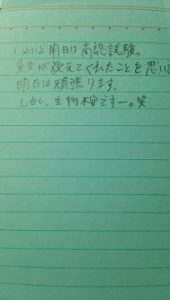 いよいよ明日は高認試験。
先生が教えてくれたことを思い
明日は頑張ります。
しかし、生物不安ですー。笑